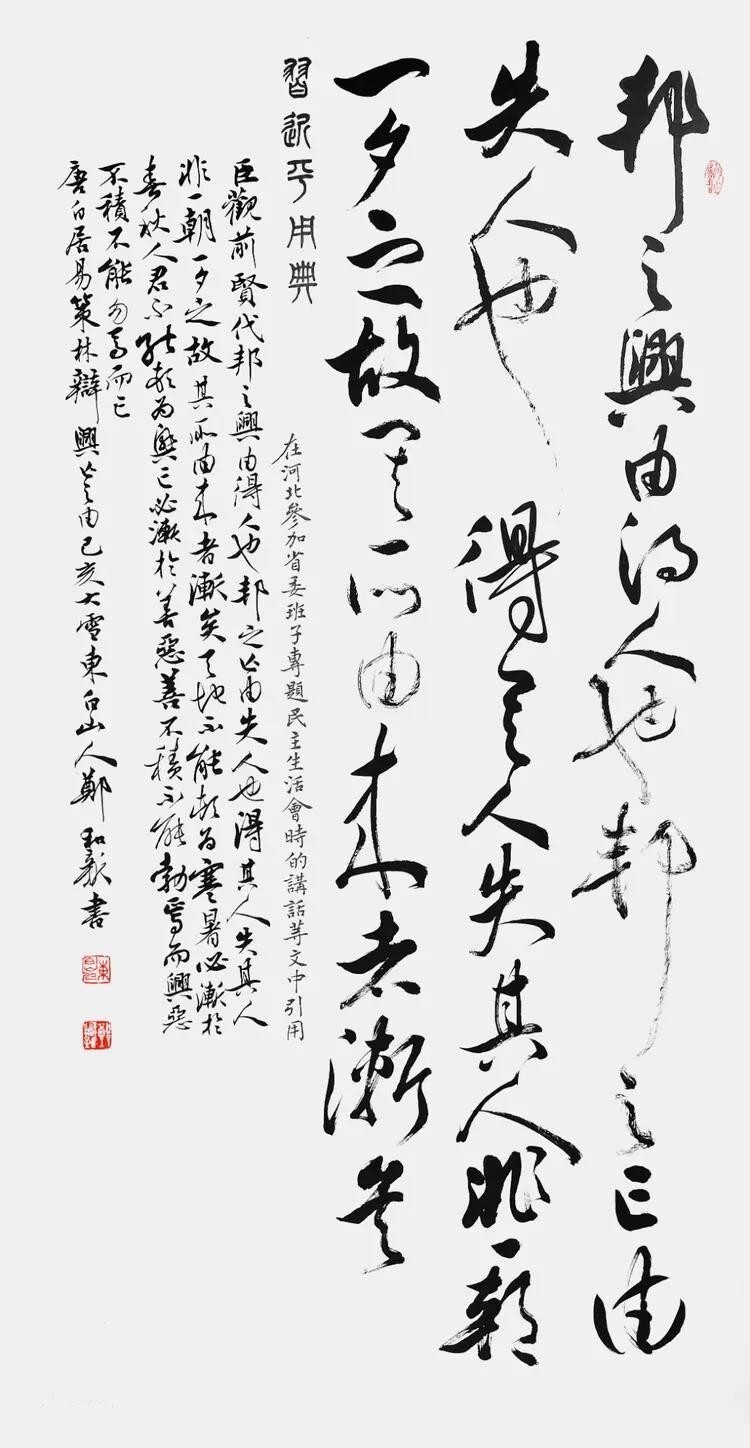 邦之興由得人也邦之亡由
失人也得其人失其人非一朝
一夕之故其所由來者漸矣
習近平用典
在河北參加省委班子專題民主生活會時的講話等文中引用
臣觀前賢代邦之興由得人也邦之亡由失人也得其人失其人
非一朝一夕之故其所由來者漸矣天地不能頓為寒暑必漸於
春秋人君不能頓為興亡必漸於善惡善不積不能勃焉而興惡
不積不能勿焉而亡
唐白居易策林辯興亡之由己亥大雪東白山人鄭和書